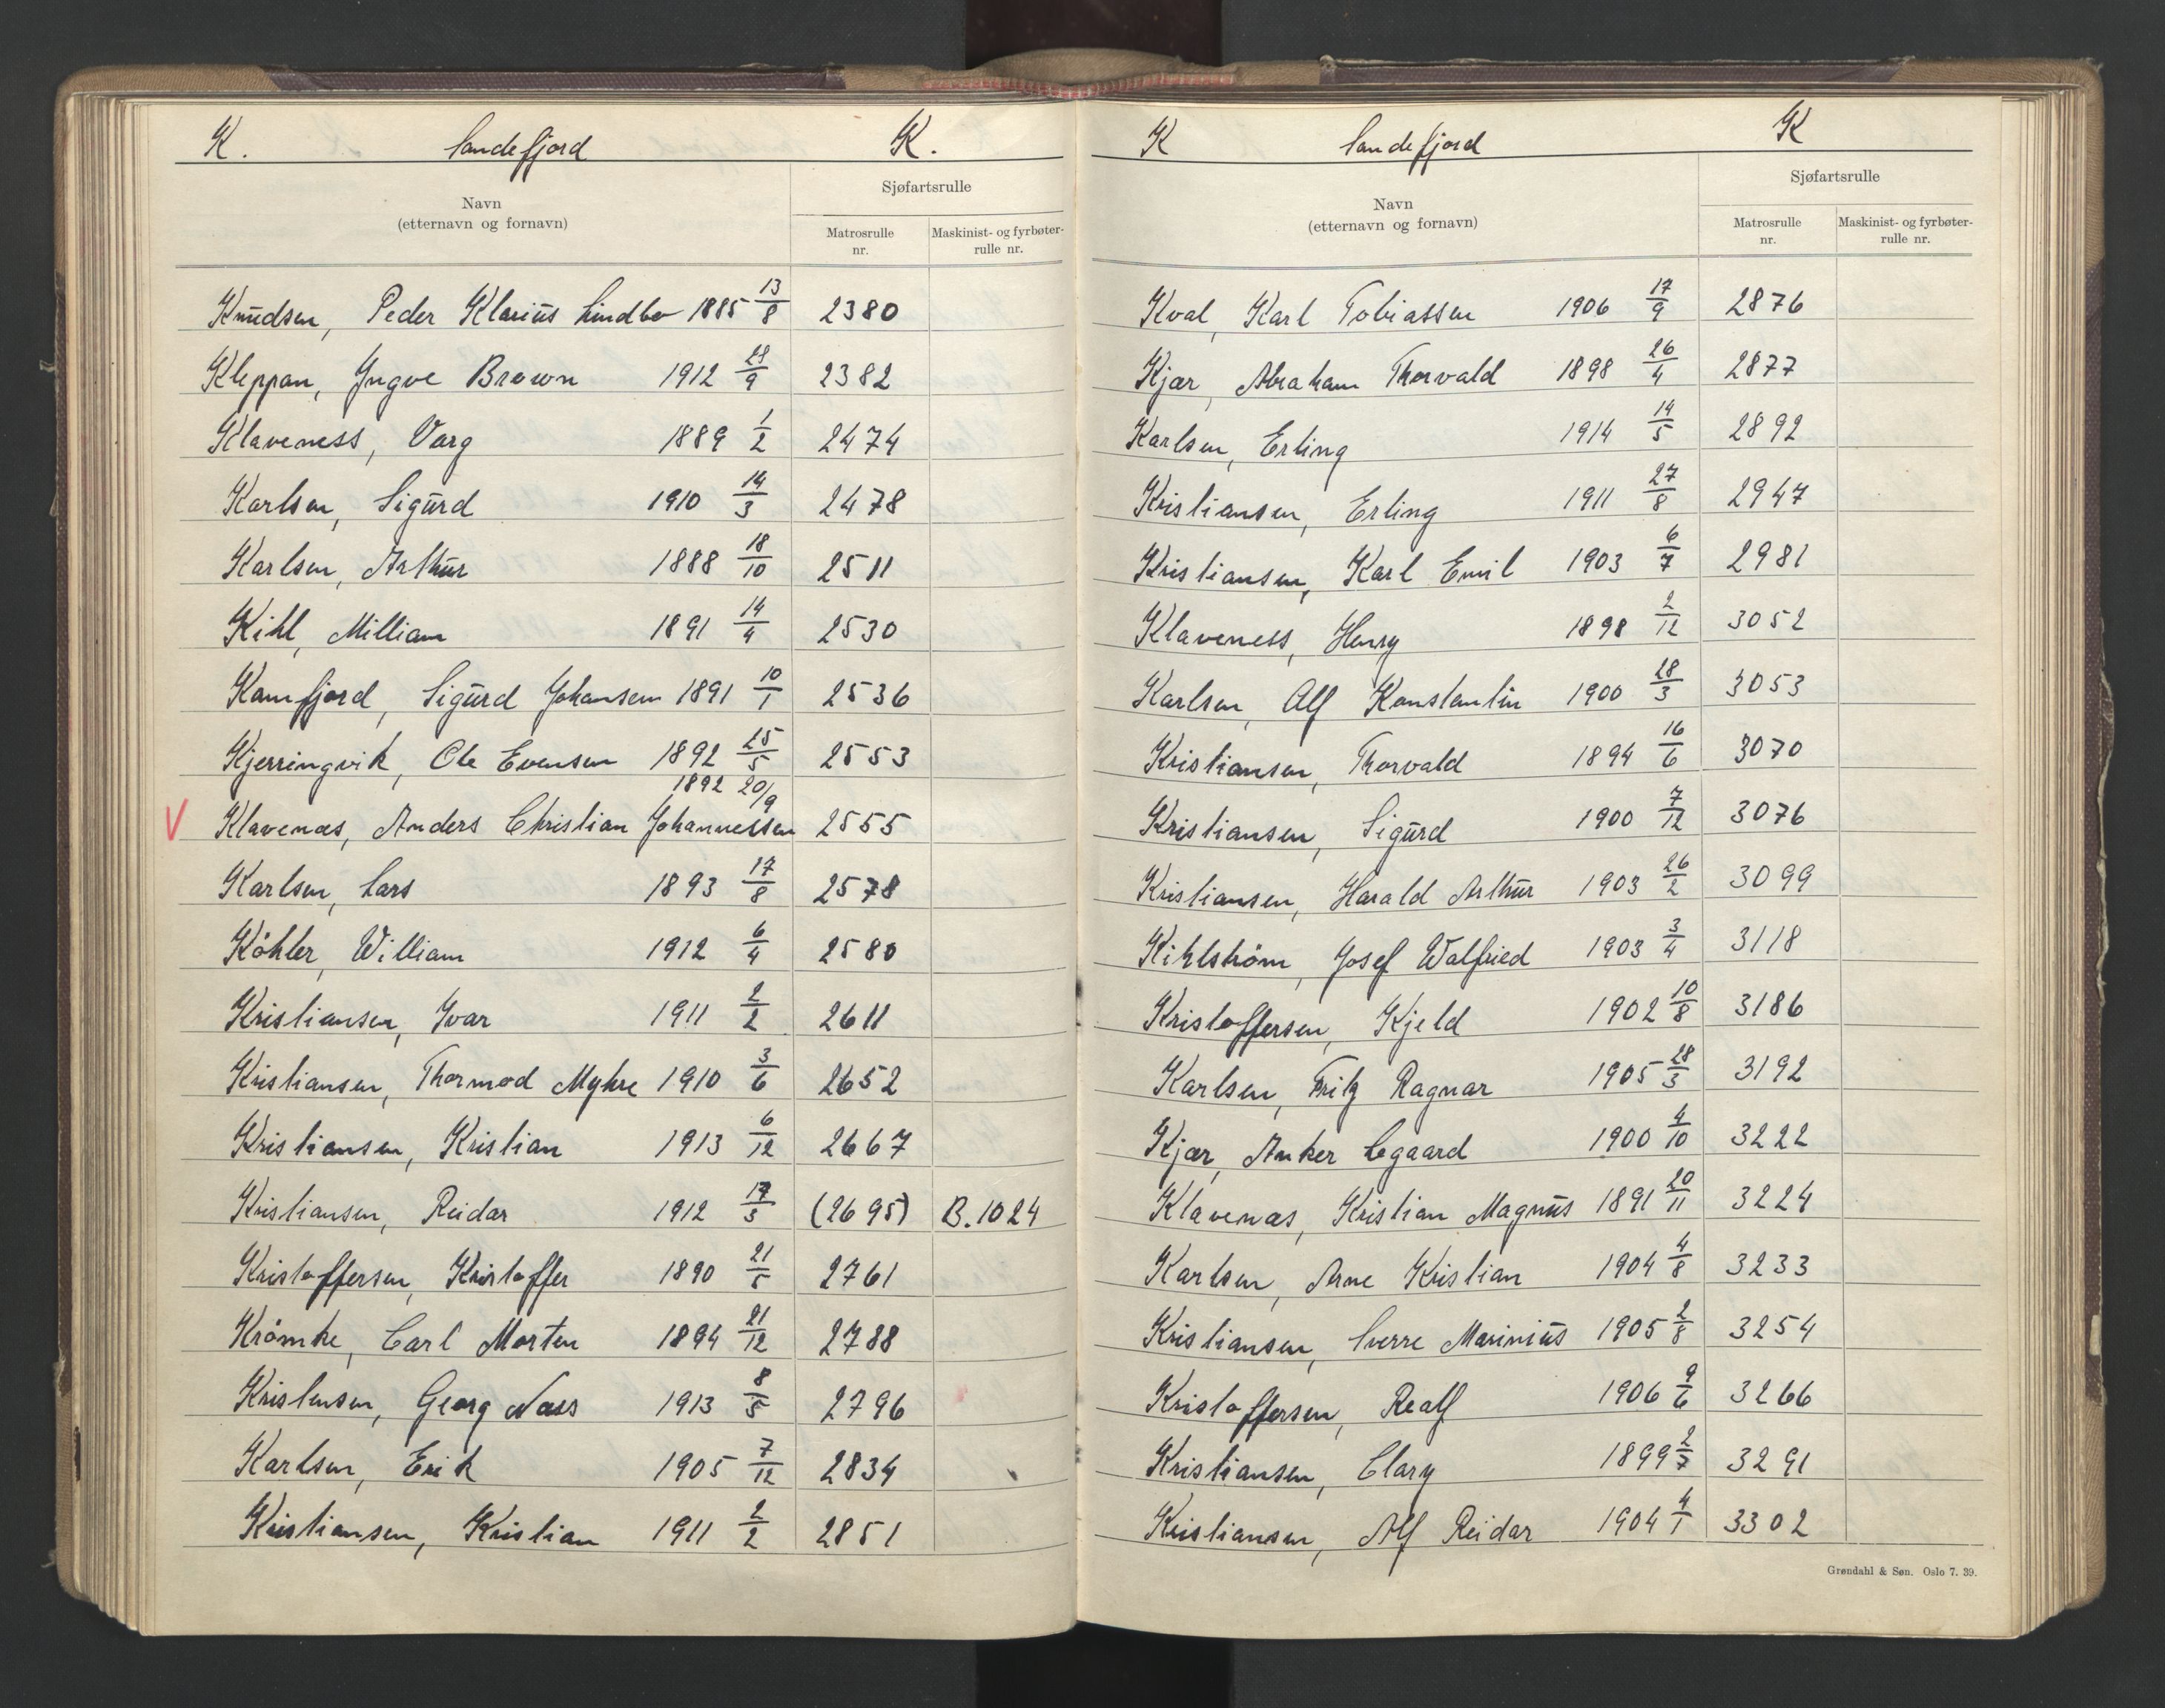 K. Sandefjord K.
Navn
(etternavn og fornavn)
Sjøfartsrulle
Matrosrulle
nr.
Maskinist- og fyrbøter-
rulle nr.
Knudsen, Peder Klarius Lindbo 1885 13/8 2380
Kleppan, Yngve Brown 1912 29/9 2382
Klaveness, Varg 1889 1/2 2474
Karlsen, Sigurd 1910 14/3 2478
Karlsen, Arthur 1888 18/10 2511
Kihl, Milliam 1891 14/4 2530
Kamfjord, Sigurd Johansen 1891 10/1 2536
Kjerringvik, Ole Evensen 1892 25/5 2553
1892 20/9
V Klavenæs, Anders Christian Johannessen 2555
Karlsen, Lars 1893 17/8 2578
Köhler, William 1912 6/4 2580
Kristiansen, Ivar 1911 2/2 2611
Kristiansen, Thormod Myhre 1910 3/6 2652
Kristiansen, Kristian 1913 6/12 2667
Kristiansen, Reidar 1912 /3 (2695) B.1024
Kristoffersen, Kristoffer 1890 21/5 2761
Krömke, Carl Morten 1894 21/12 2788
Kristensen, Georg Næss 1913 8/5 2796
Karlsen, Erik 1905 7/12 2834
Kristiansen, Kristian 1911 2/2 2851
K Sandefjord K
Navn
(etternavn og fornavn)
Sjøfartsrulle
Matrosrulle
nr.
Maskinist- og fyrbøter-
rulle nr.
Kval, Karl Tobiassen 1906 17/9 2876
Kjær, Abraham Thorvald 1898 26/4 2877
Karlsen, Erling 1914 14/5 2892
Kristiansen, Erling 1911 27/8 2947
Kristiansen, Karl Emil 1903 6/7 2981
Klaveness, Henry 1898 2/12 3052
Karlsen, Alf Konstantin 1900 28/3 3053
Kristiansen, Thorvald 1894 16/6 3070
Kristiansen, Sigurd 1900 7/12 3076
Kristiansen, Harald Arthur 1903 26/2 3099
Kihlström, Josef Walfried 1903 3/4 3118
Kristoffersen, Kjeld 1902 10/8 3186
Karlsen, Fritz Ragnar 1905 28/3 3192
Kjær, Anker Legaard 1900 4/10 3222
Klavenæs, Kristian Magnus 1891 20/11 3224
Karlsen, Arne Kristian 1904 4/8 3233
Kristiansen, Sverre Marinius 1905 2/8 3254
Kristoffersen, Realf 1906 9/6 3266
Kristiansen, Clary 1899 2/7 3291
Kristiansen, Alf Reidar 1904 4/1 3302
Grøndahl & Søn. Oslo 7. 39.